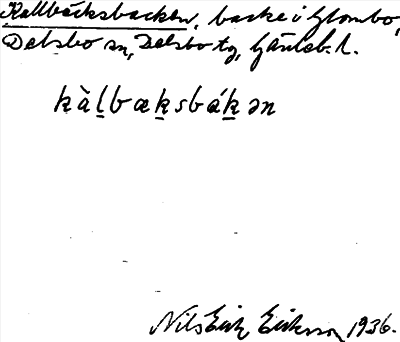 Kallbäcksbacken, backe i Glombo,
Delsbo sn, Delsbo tg, Gävleb. l.
kàl̠bæk̠sbák̠ən
Nils Erik Eriksson 1936.